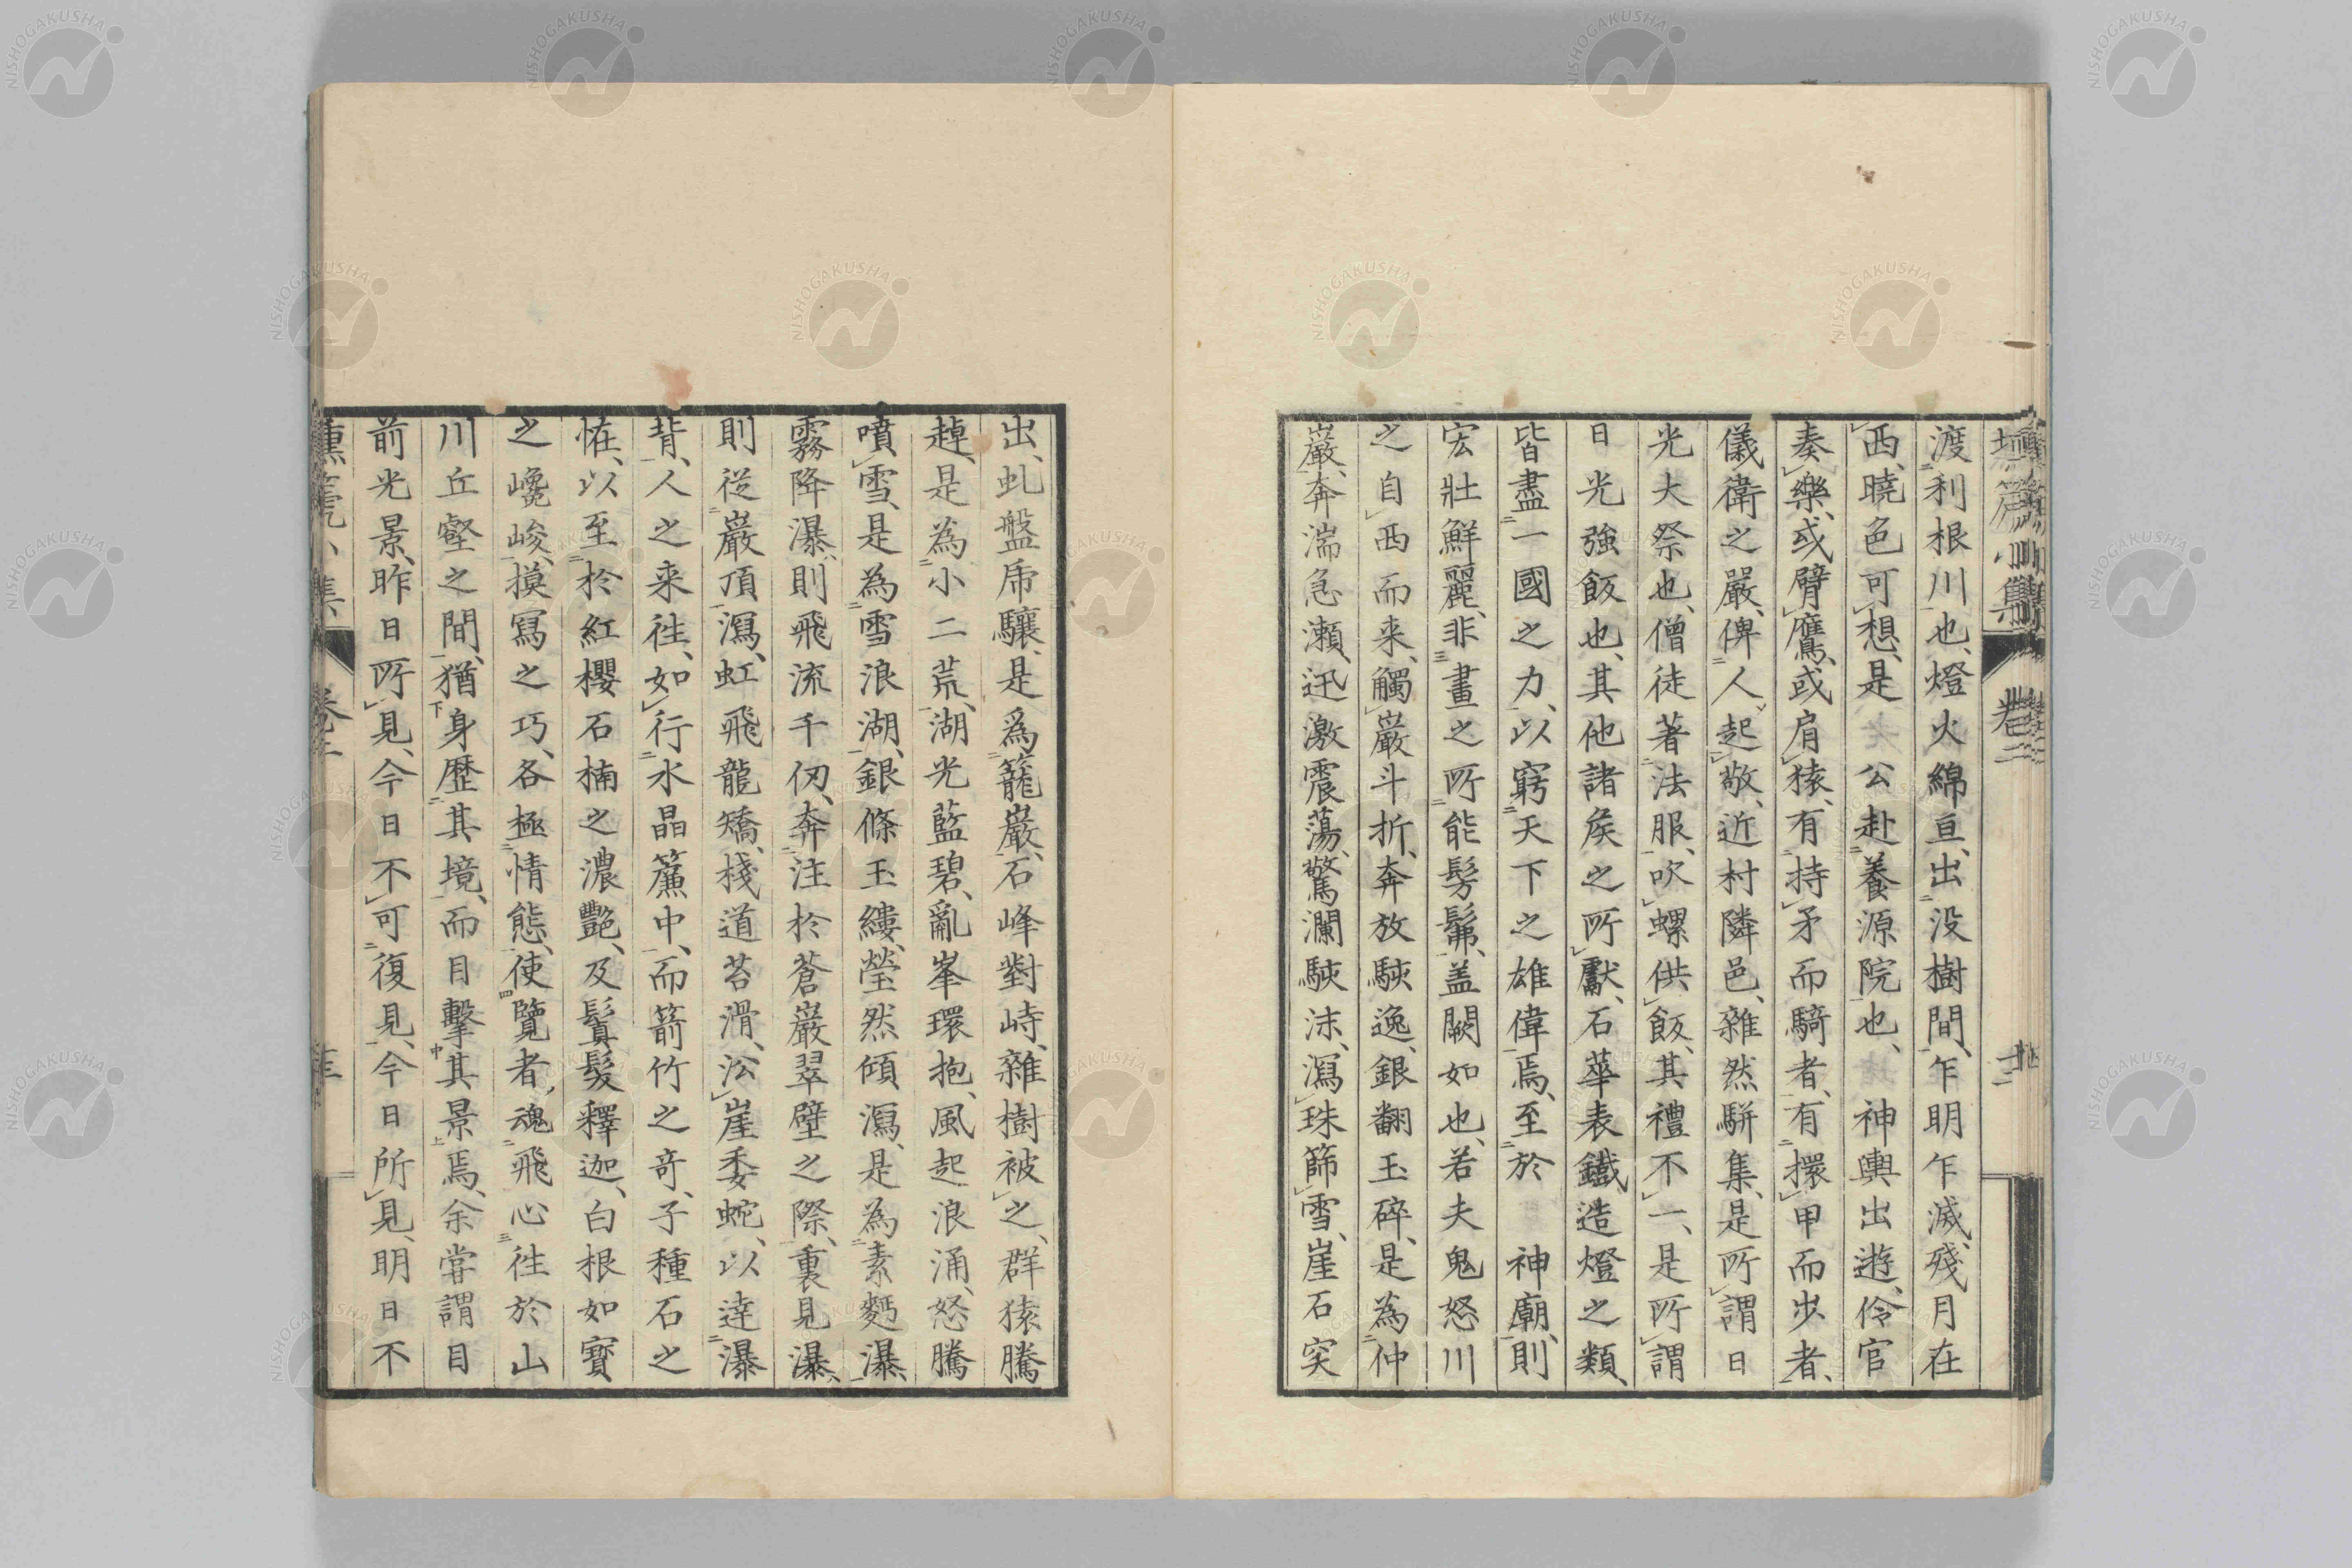 渡利根川也、燈火綿亘、出没樹間、乍明乍滅、殘月在
西、曉色可想、是 公赴養源院也、 神輿出遊、伶官
奏樂、或臂鷹、或肩猿、有持矛而騎者、有擐甲而步者、
儀衛之嚴、俾人起敬、近村隣邑、雜然駢集、是所謂日
光大祭也、僧徒著法服、吹螺供飯、其禮不一、是所謂
日光強飯也、其他諸矦之所獻、石華表鐵造燈之類、
皆盡一國之力、以窮天下之雄偉焉、至於 神廟、則
宏壯鮮麗、非畫之所能髣髴、盖闕如也、若夫鬼怒川
之自西而来、觸巖斗折、奔放駛逸、銀翻玉碎、是為仲
巖、奔湍急瀬、迅激震蕩、驚瀾駛沫、瀉珠篩雪、崖石突
出、虬盤乕驤、是爲籠巖、石峰對峙、雜樹被之、群猿騰
趠、是為小二荒、湖光藍碧、亂峯環抱、風起浪涌、怒騰
噴雪、是為雪浪湖、銀條玉縷、瑩然傾瀉、是為素麪瀑、
霧降瀑、則飛流千仞、奔注於蒼巖翠壁之際、裏見瀑、
則從巖頂瀉、虹飛龍矯、棧道苔滑、沿崖委蛇、以達瀑
背、人之来往、如行水晶簾中、而箭竹之奇、子種石之
恠、以至於紅櫻石楠之濃艷、及鬒髮釋迦、白根如寶
之巉峻、摸寫之巧、各極情態、使覽者、魂飛心往於山
川丘壑之間、猶身歴其境、而目擊其景焉、余甞謂目
前光景、昨日所見、今日不可復見、今日所見、明日不
塤篪小集 卷二